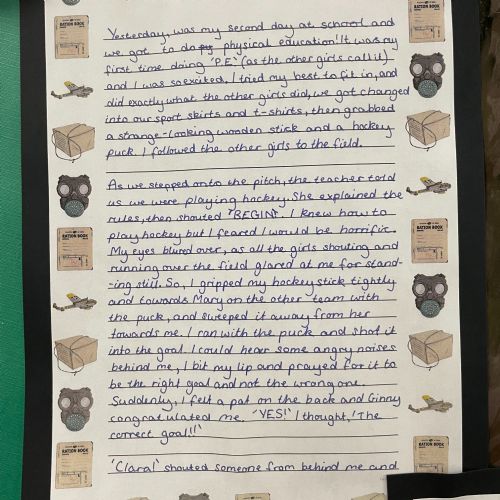 Yesterday, was my second day at school and
we got to do physical education! It was my
first time doing 'P.E' (as the other girls call it)
and I was so excited. I tried my best to fit in, and
did exactly what the other girls did, we got changed
into our sport skirts and t-shirts, then grabbed
a strange-looking wooden stick and a hockey
puck. I followed the other girls to the field.
As we stepped onto the pitch, the teacher told
us we were playing hockey. She explained the
rules, then shouted "BEGIN". I knew how to
play hockey but I feared I would be horrific.
My eyes blured over, as all the girls shouting and
running over the field glared at me for stand-
-ing still. So, I gripped my hockey stick tightly
and towards Mary on the other team with
the puck, and sweeped it away from her
towards me. I ran with the puck and shot it
into the goal. I could hear some angry noises
behind me, I bit my lip and prayed for it to
be the right goal and not the wrong one.
Suddenly, I felt a pat on the back and Ginny
congratulated me. "YES!" I thought, 'The
correct goal!!'
'Clara!' shouted someone from behind me and
RATION BOOK
RATION BOOK
RATION BOOK
RATION BOOK
RATION BOOK
RATION BOOK